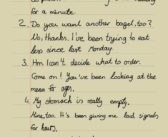 for a minute.
2. Do you want another bagel, too?
No, thanks. I've been trying to eat
less since last Monday.
3. Hm I can't decide what to order.
Come on! You've been looking at the
menu for ages.
4. My stomach is really empty.
Mine, too. It's been giving me bad signals
for hours.